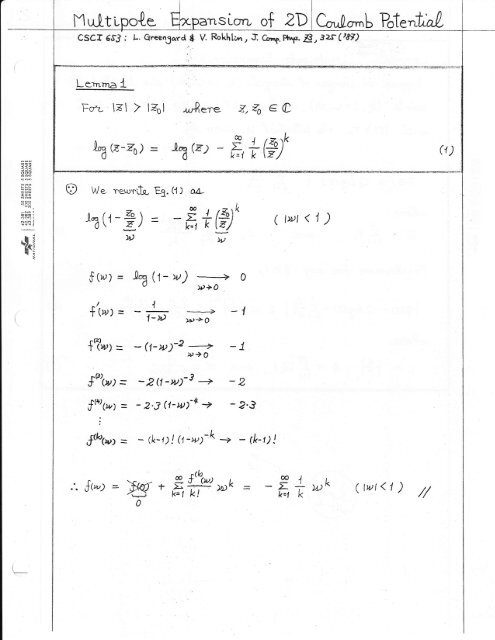 Multipole Expansion of 2D Coulomb Potential
CSCI 653 : L. Greengard & V. Rokhlin, J. Comp. Phys. 73, 325 ('87)
Lemma 1
For |z| > |z₀| where z, z₀ ∈ ℂ
log (z-z₀) = log (z) - Σ_{k=1}^{∞} 1/k (z₀/z)^k (1)
∵ We rewrite Eq. (1) as
log (1 - z₀/z) = - Σ_{k=1}^{∞} 1/k (z₀/z)^k (|w| < 1)
w w
f(w) = log (1-w) → 0
w→0
f'(w) = - 1/(1-w) → -1
w→0
f⁽²⁾(w) = -(1-w)⁻² → -1
w→0
f⁽³⁾(w) = -2(1-w)⁻³ → -2
f⁽⁴⁾(w) = -2·3 (1-w)⁻⁴ → -2·3
⋮
f⁽ᵏ⁾(w) = -(k-1)! (1-w)⁻ᵏ → -(k-1)!
∴ f(w) = f(0) + Σ_{k=1}^{∞} f⁽ᵏ⁾(w)/k! w^k = - Σ_{k=1}^{∞} 1/k w^k (|w| < 1) //
0